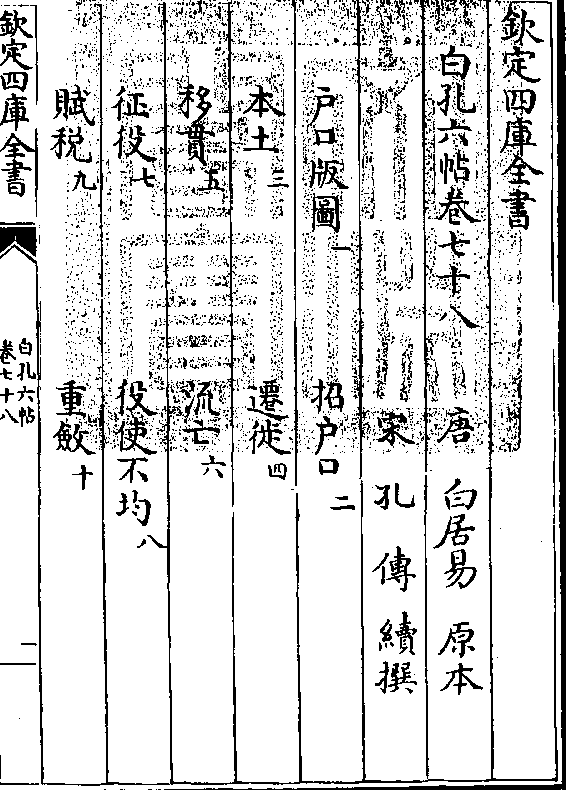 欽定四庫全書
白孔六帖卷七十八 唐 白居易 原本
宋 孔 傳 續撰
戶口版圖一 招戶口二
本土三 遷徙四
移貫五 流亡六
征役七 役使不均八
賦税九 重斂十
欽定四庫全書
白孔六帖
卷七十八
一